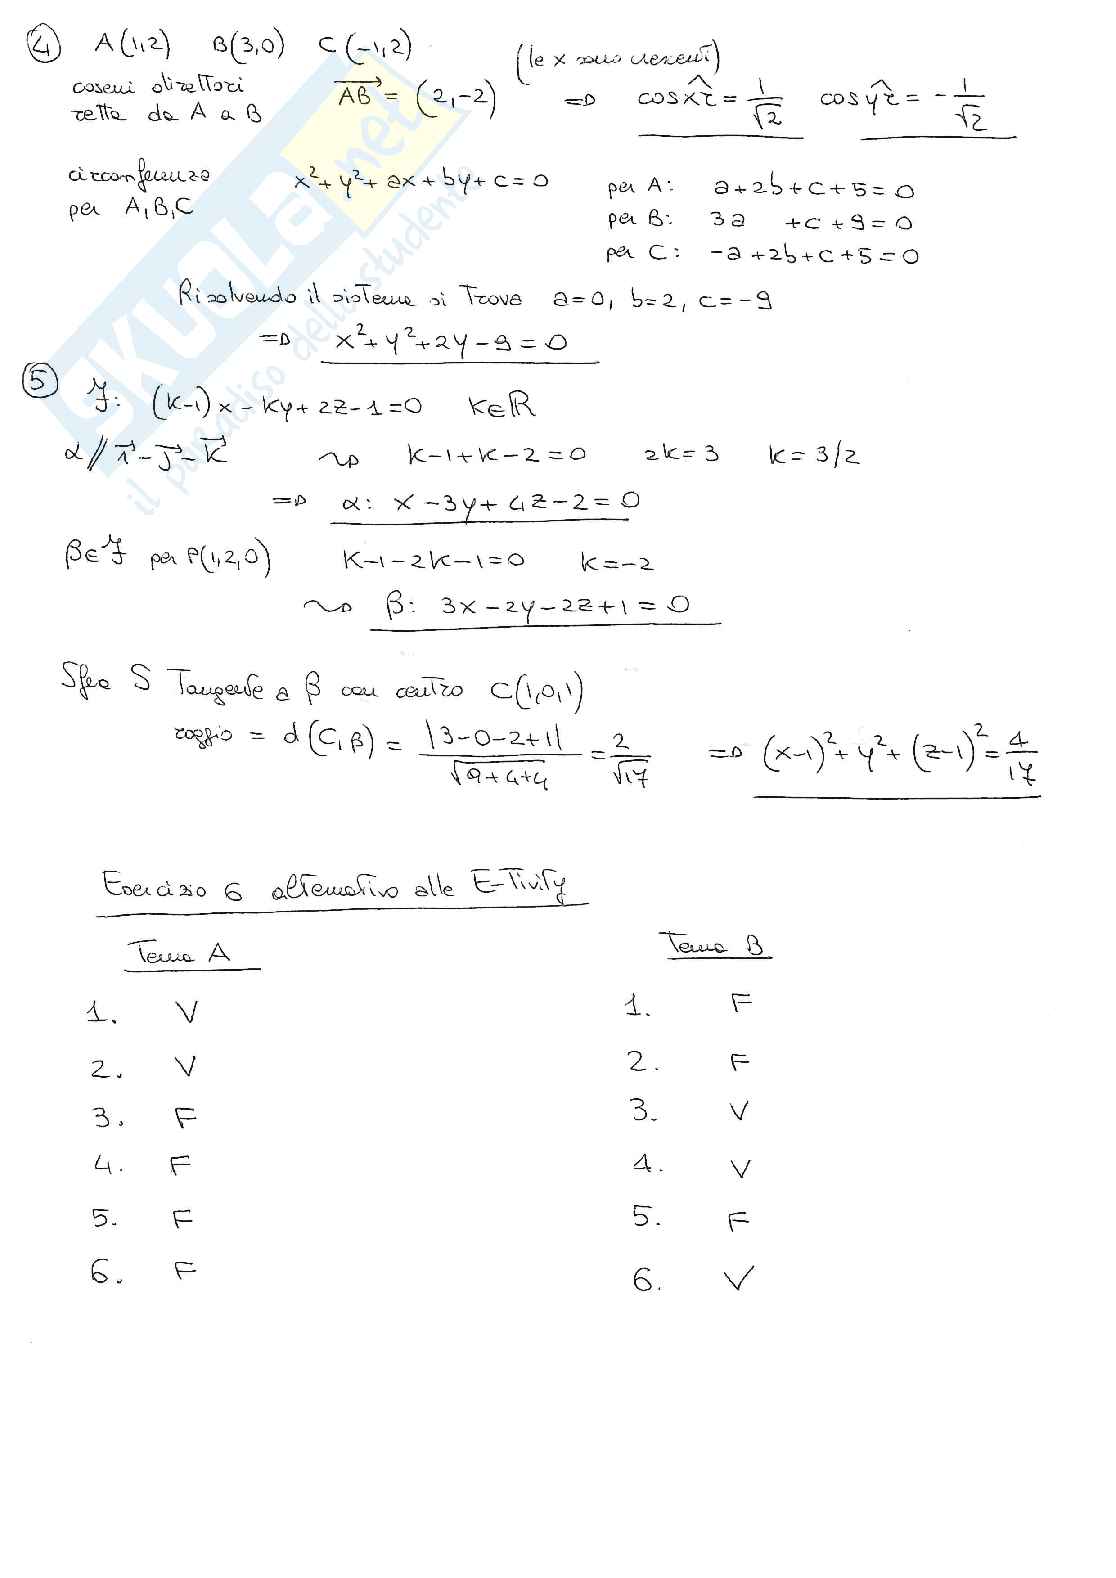 4 A(1,2) B(3,0) C(-1,2)
coseni direttori retta da A a B
AB = (2,-2)
(le x sono crescenti)
⇒ cos xr = 1/√2 cos yr = -1/√2
circonferenza per A,B,C
x²+y²+ax+by+c=0
per A: a+2b+c+5=0
per B: 3a +c+9=0
per C: -a+2b+c+5=0
Risolvendo il sistema si trova a=0, b=2, c=-9
⇒ x²+y²+2y-9=0
5 F: (k-1)x-ky+2z-1=0 k∈R
α // i-j-k ⇝ k-1+k-2=0 2k=3 k=3/2
⇒ α: x-3y+4z-2=0
β∈F per P(1,2,0) k-1-2k-1=0 k=-2
⇝ β: 3x-2y-2z+1=0
Sfera S Tangente a β con centro C(1,0,1)
raggio = d(C,β) = |3-0-2+1|/√9+4+4 = 2/√17 ⇒ (x-1)²+y²+(z-1)²=4/17
Esercizio 6 alternativo alle E-Tivity
Tema A
1. V
2. V
3. F
4. F
5. F
6. F
Tema B
1. F
2. F
3. V
4. V
5. F
6. V
SKUOLA.net
il paradiso dello studente